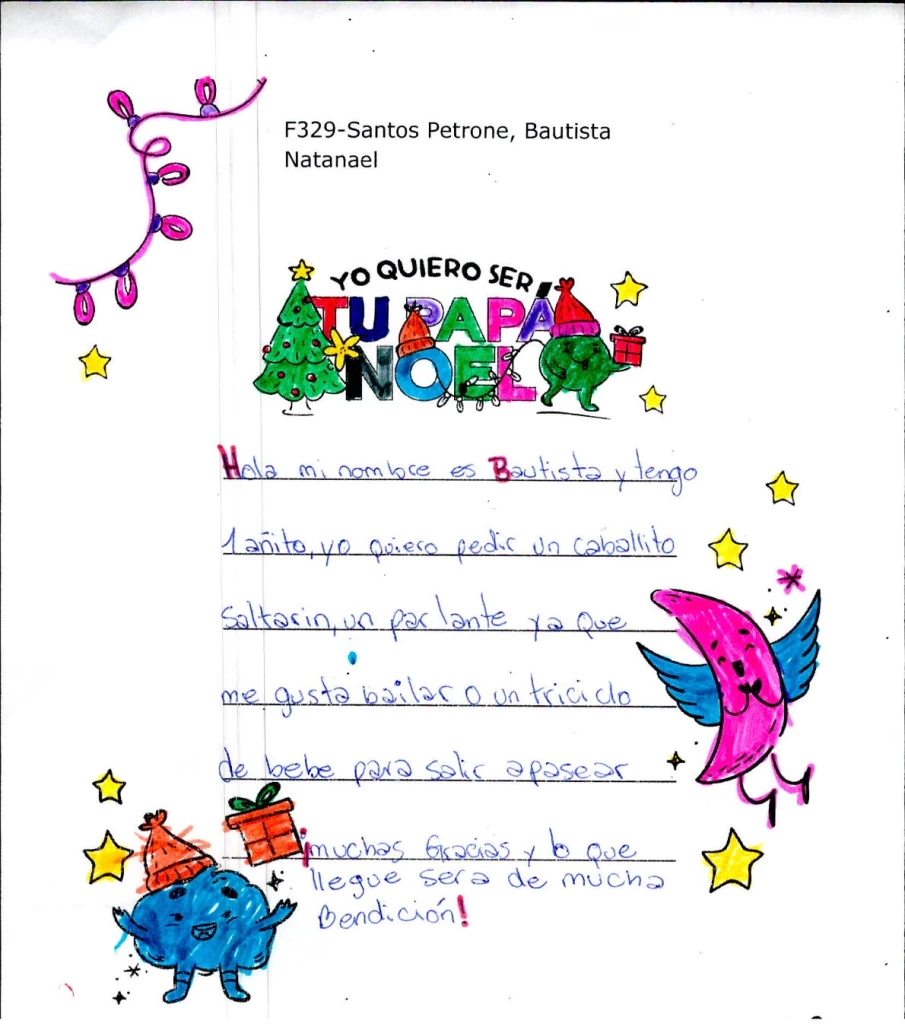 F329-Santos Petrone, Bautista
Natanael
YO QUIERO SER
TU PAPÁ
NOEL
Hola mi nombre es Bautista y tengo
1 añito, yo quiero pedir un caballito
Saltarin, un parlante ya que
me gusta bailar o un triciclo
de bebe para salir a pasear
¡muchas Gracias y lo que
llegue sera de mucha
Bendición!